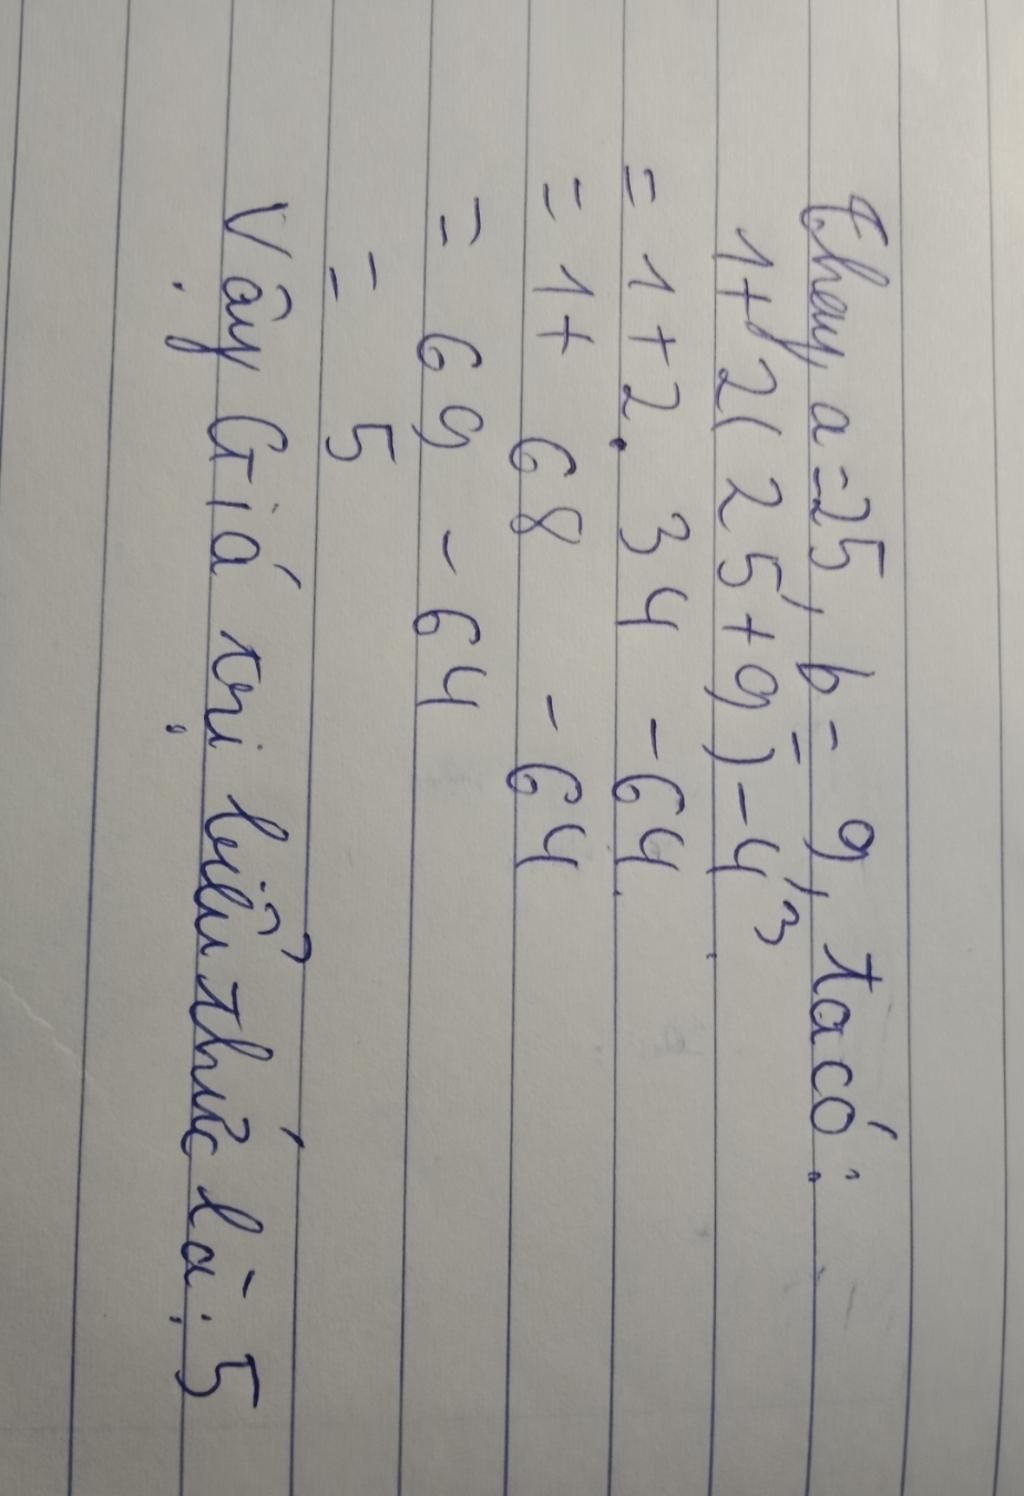 Thay a = 25, b = 9, ta có:
1+2(25+9)-4³
= 1+2.34-64
= 1+68-64
= 69-64
= 5
Vậy Giá trị biểu thức là: 5